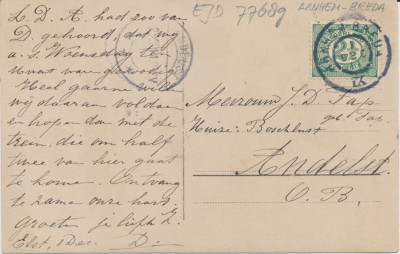 L. D. A. had zoo van
D. gehoord, dat wij
a. s. Woensdag te
Heel gaarne willen
wij daaraan voldoen
en hopen dan met de
trein, die om half
twee van hier gaat
te komen. Ontvang
te zamen onze hart.
groeten je liefh. Z.
Elst, 1 Dec. D.
EJD 77689
ARNHEM-BREDA
2½
Mevrouw J. D. Pap
Huize: Boschlust
Andelst.
O. B.